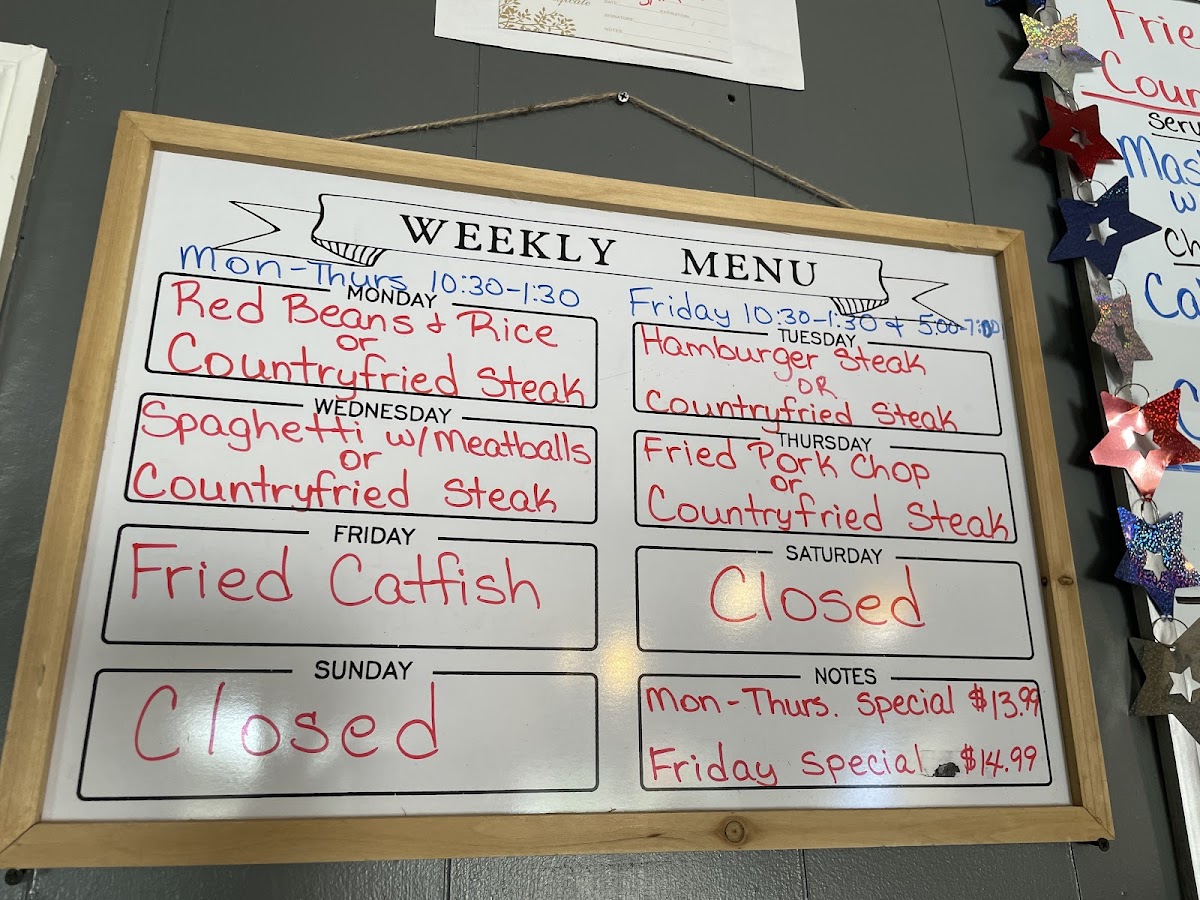 WEEKLY MENU
Mon-Thurs 10:30-1:30
Friday 10:30-1:30 & 5:00-7:00
MONDAY
Red Beans & Rice
or
Countryfried Steak
TUESDAY
Hamburger Steak
OR
Countryfried Steak
WEDNESDAY
Spaghetti w/meatballs
or
Countryfried Steak
THURSDAY
Fried Pork Chop
or
Countryfried Steak
FRIDAY
Fried Catfish
SATURDAY
Closed
SUNDAY
Closed
NOTES
Mon-Thurs. Special $13.99
Friday Special $14.99